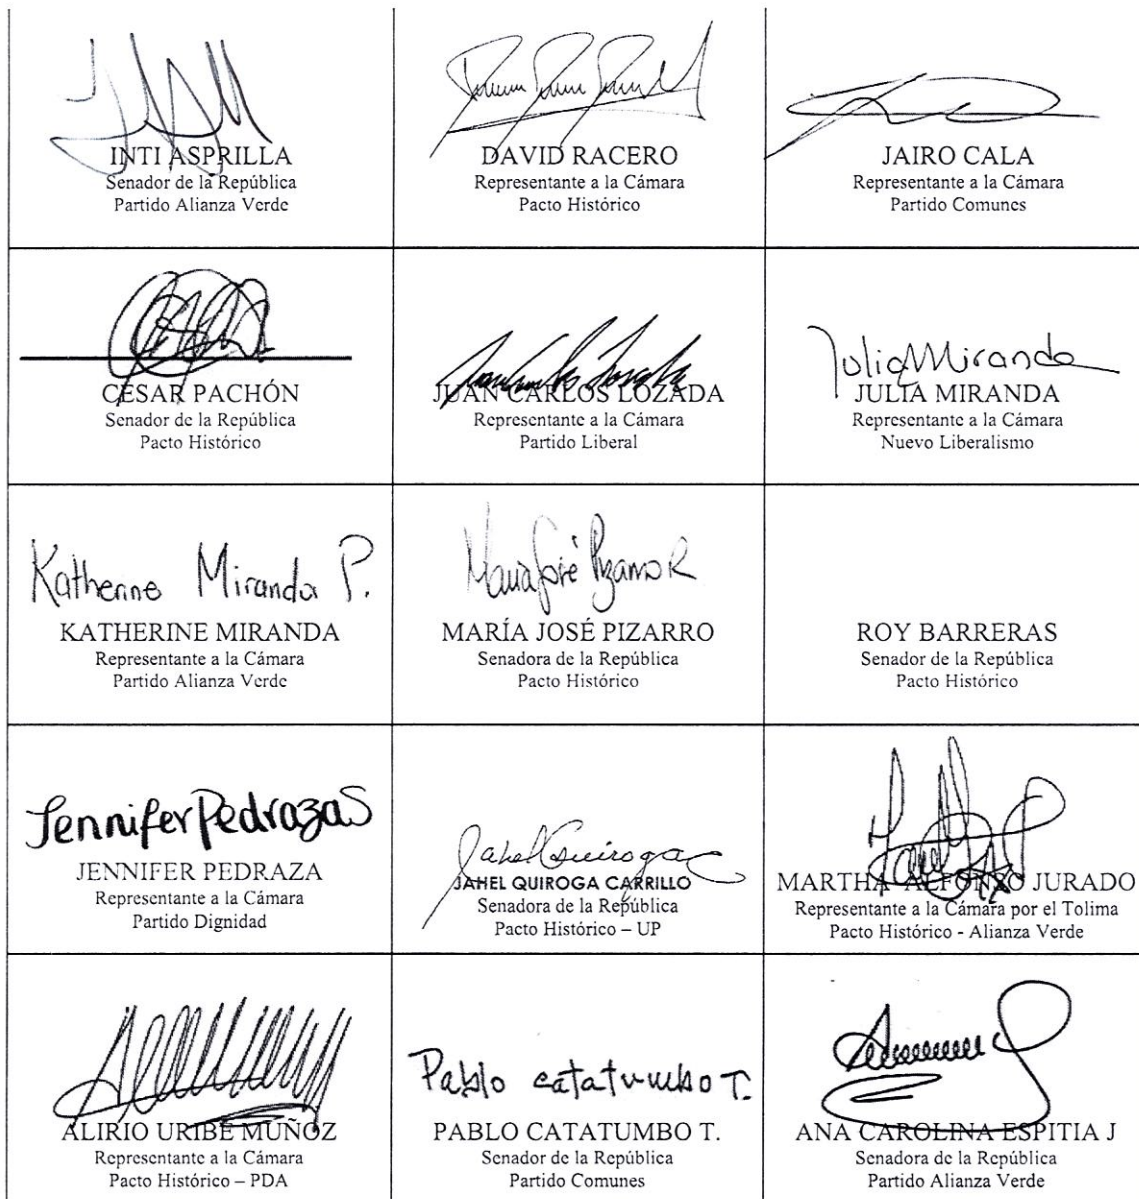 INTI ASPRILLA
Senador de la República
Partido Alianza Verde
DAVID RACERO
Representante a la Cámara
Pacto Histórico
JAIRO CALA
Representante a la Cámara
Partido Comunes
CÉSAR PACHÓN
Senador de la República
Pacto Histórico
JUAN CARLOS LOZADA
Representante a la Cámara
Partido Liberal
Julia Miranda
JULIA MIRANDA
Representante a la Cámara
Nuevo Liberalismo
Katherine Miranda P.
KATHERINE MIRANDA
Representante a la Cámara
Partido Alianza Verde
María José Pizarro R
MARÍA JOSÉ PIZARRO
Senadora de la República
Pacto Histórico
ROY BARRERAS
Senador de la República
Pacto Histórico
Jennifer Pedraza S
JENNIFER PEDRAZA
Representante a la Cámara
Partido Dignidad
Jahel Quiroga C
JAHEL QUIROGA CARRILLO
Senadora de la República
Pacto Histórico – UP
MARTHA ALFONSO JURADO
Representante a la Cámara por el Tolima
Pacto Histórico - Alianza Verde
ALIRIO URIBE MUÑOZ
Representante a la Cámara
Pacto Histórico – PDA
Pablo catatumbo T.
PABLO CATATUMBO T.
Senador de la República
Partido Comunes
ANA CAROLINA ESPITIA J
Senadora de la República
Partido Alianza Verde